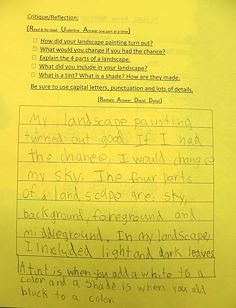 Critique/Reflection:
(Read to the mind Underline Answer one part at a time)
□ How did your landscape painting turn out?
□ What would you change if you had the chance?
□ Explain the 4 parts of a landscape.
□ What did you include in your landscape?
□ What is a tint? What is a shade? How are they made.
Be sure to use capital letters, punctuation and lots of details.
(Restate Answer Detail Detail)
My landscape painting
turned out good. If I had
the chance, I would change
my sky. The four parts
of a landscape are; sky,
background, foreground and
middleground. In my landscape,
I included light and dark leaves.
A tint is when you add a white to a
color and a shade is when you add
black to a color.